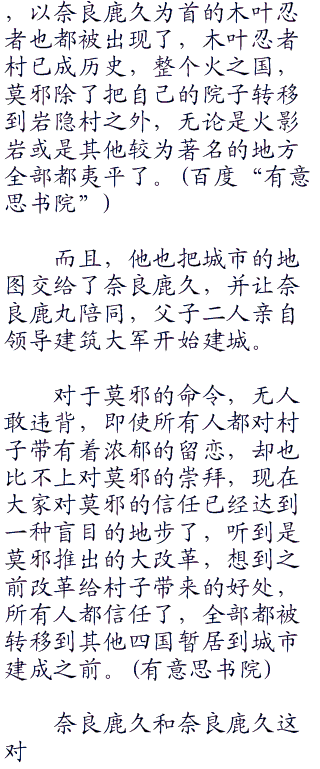 ，以奈良鹿久为首的木叶忍
者也都被出现了，木叶忍者
村已成历史，整个火之国，
莫邪除了把自己的院子转移
到岩隐村之外，无论是火影
岩或是其他较为著名的地方
全部都夷平了。（百度“有意
思书院”）
而且，他也把城市的地
图交给了奈良鹿久，并让奈
良鹿丸陪同，父子二人亲自
领导建筑大军开始建城。
对于莫邪的命令，无人
敢违背，即使所有人都对村
子带有着浓郁的留恋，却也
比不上对莫邪的崇拜，现在
大家对莫邪的信任已经达到
一种盲目的地步了，听到是
莫邪推出的大改革，想到之
前改革给村子带来的好处，
所有人都信任了，全部都被
转移到其他四国暂居到城市
建成之前。（有意思书院）
奈良鹿久和奈良鹿久这
对